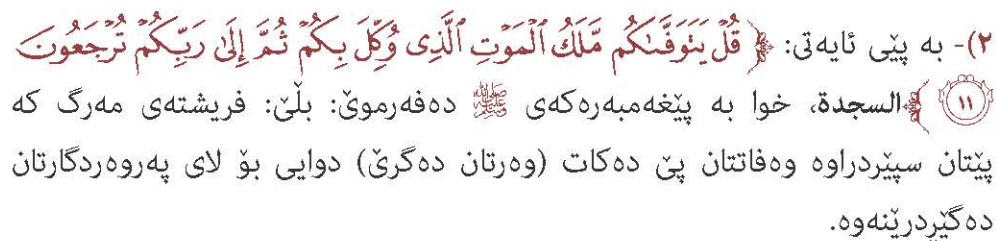 ٢)- بە پێی ئایەتی: ﴿ قُلْ يَتَوَفَّىٰكُم مَّلَكُ ٱلْمَوْتِ ٱلَّذِى وُكِّلَ بِكُمْ ثُمَّ إِلَىٰ رَبِّكُمْ تُرْجَعُونَ
١١ ﴾السجدة، خوا بە پێغەمبەرەکەی ﷺ دەفەرموێ: بڵێ: فریشتەی مەرگ کە
پێتان سپێردراوە وەفاتتان پێ دەکات (وەرتان دەگرێ) دوایی بۆ لای پەروەردگارتان
دەگێڕدرێنەوە.